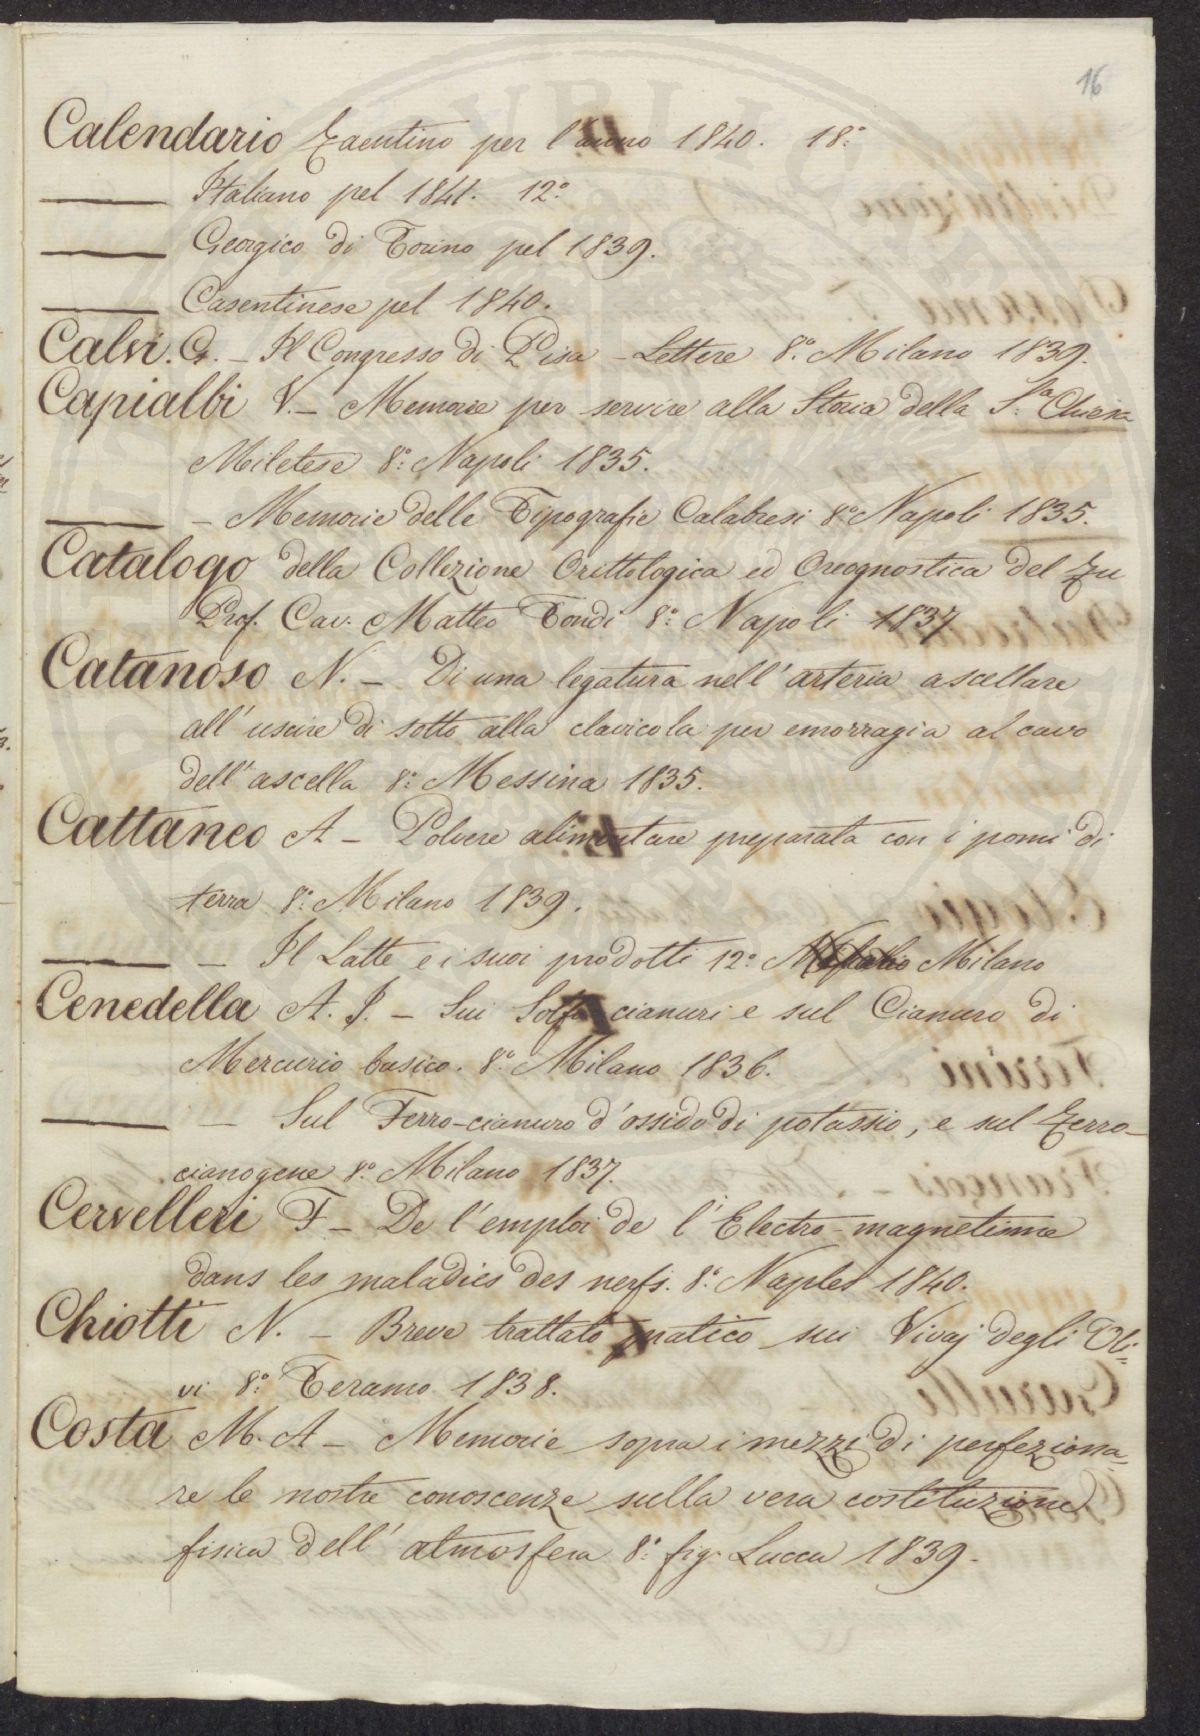 16
Calendario Faentino per l'anno 1840. 18.°
——— Italiano pel 1841. 12.°
——— Georgico di Torino pel 1839.
——— Casentinese pel 1840.
Calvi. G. – Il Congresso di Pisa – Lettere 8.° Milano 1839.
Capialbi V. – Memorie per servire alla Storia della S.ta Chiesa
Miletese 8.° Napoli 1835.
——— – Memorie delle Tipografie Calabresi 8.° Napoli 1835.
Catalogo della Collezione Orittologica ed Oreognostica del fu
Prof. Cav. Matteo Tondi 8.° Napoli 1837
Catanoso N. – Di una legatura nell'arteria ascellare
all'uscire di sotto alla clavicola per emorragia al cavo
dell'ascella 8.° Messina 1835.
Cattaneo A – Polvere alimentare preparata con i pomi di
terra 8.° Milano 1839.
——— – Il Latte e i suoi prodotti 12.° Milano
Cenedella A. J. – Sui Solfo cianuri e sul Cianuro di
Mercurio basico. 8.° Milano 1836.
——— – Sul Ferro-cianuro d'ossido di potassio, e sul Ferro-
cianogene 8.° Milano 1837.
Cervelleri F – De l'emploi de l'Electro-magnetisme
dans les maladies des nerfs. 8.° Naples 1840.
Chiotti N. – Breve trattato pratico sui Vivaj degli Oli=
vi 8.° Teramo 1838.
Costa M. A – Memorie sopra i mezzi di perfeziona=
re le nostre conoscenze sulla vera costituzione
fisica dell'atmosfera 8.° fig. Lucca 1839.